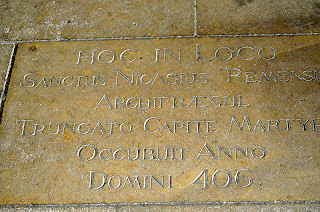 HOC IN LOCO
SANCTUS NICASIUS REMENSI
ARCHIPRÆSUL
TRUNCATO CAPITE MARTYR
OCCUBUIT ANNO
DOMINI 406